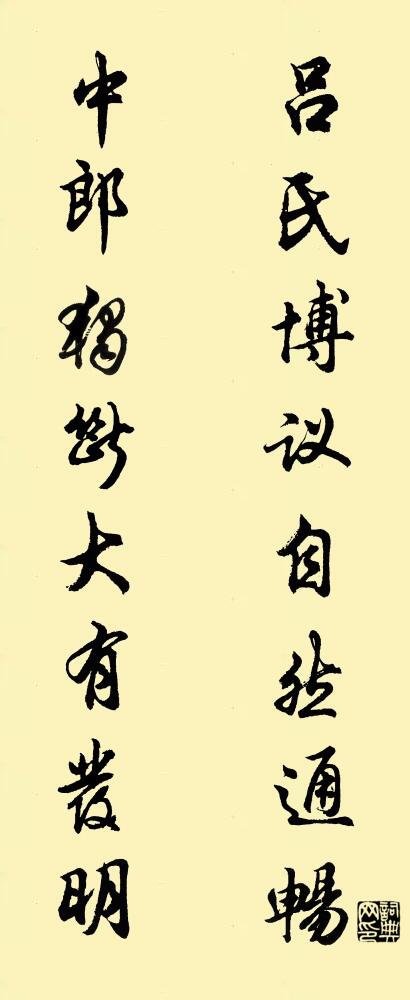 吕氏博议自然通畅
中郎獨斷大有發明
詞典网印